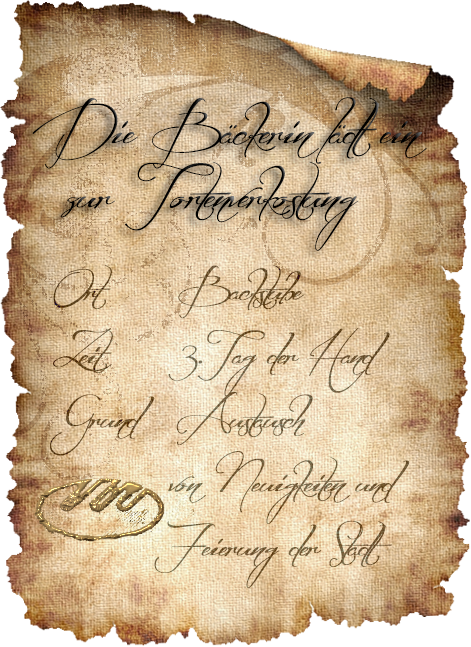 Die Bäckerin lädt ein
zur Tortenverkostung
Ort Backstube
Zeit 3. Tag der Hand
Grund Austausch
von Neuigkeiten und
Feierung der Stadt